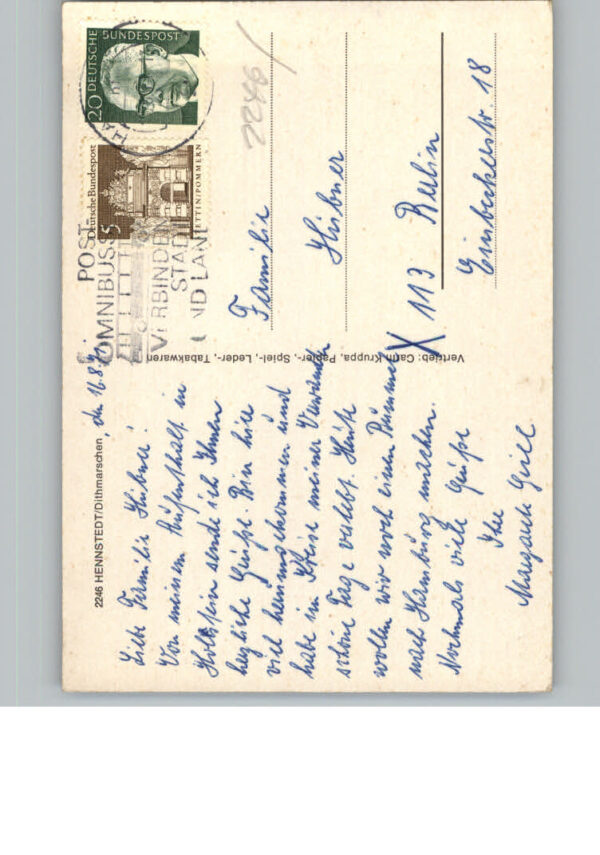 2246 HENNSTEDT/Dithmarschen
den 16.8.
Liebe Familie Hübner!
Von meinem Aufenthalt in
Holstein sende ich Ihnen
herzliche Grüße. Bin hier
viel herumgekommen und
habe im Kreise meiner Verwandten
schöne Tage verlebt. Heute
wollen wir noch einen Bummel
nach Hamburg machen.
Nochmals viele Grüße
Ihre
Margarete Grill
Vertrieb: Carin Kruppa, Papier-, Spiel-, Leder-, Tabakwaren
DEUTSCHE BUNDESPOST
20
Deutsche Bundespost
5
STETTIN/POMMERN
POST-
OMNIBUSSE
VERBINDEN
STADT
UND LAND
2246
Familie
Hübner
X 113 Berlin
Einbeckerstr. 18